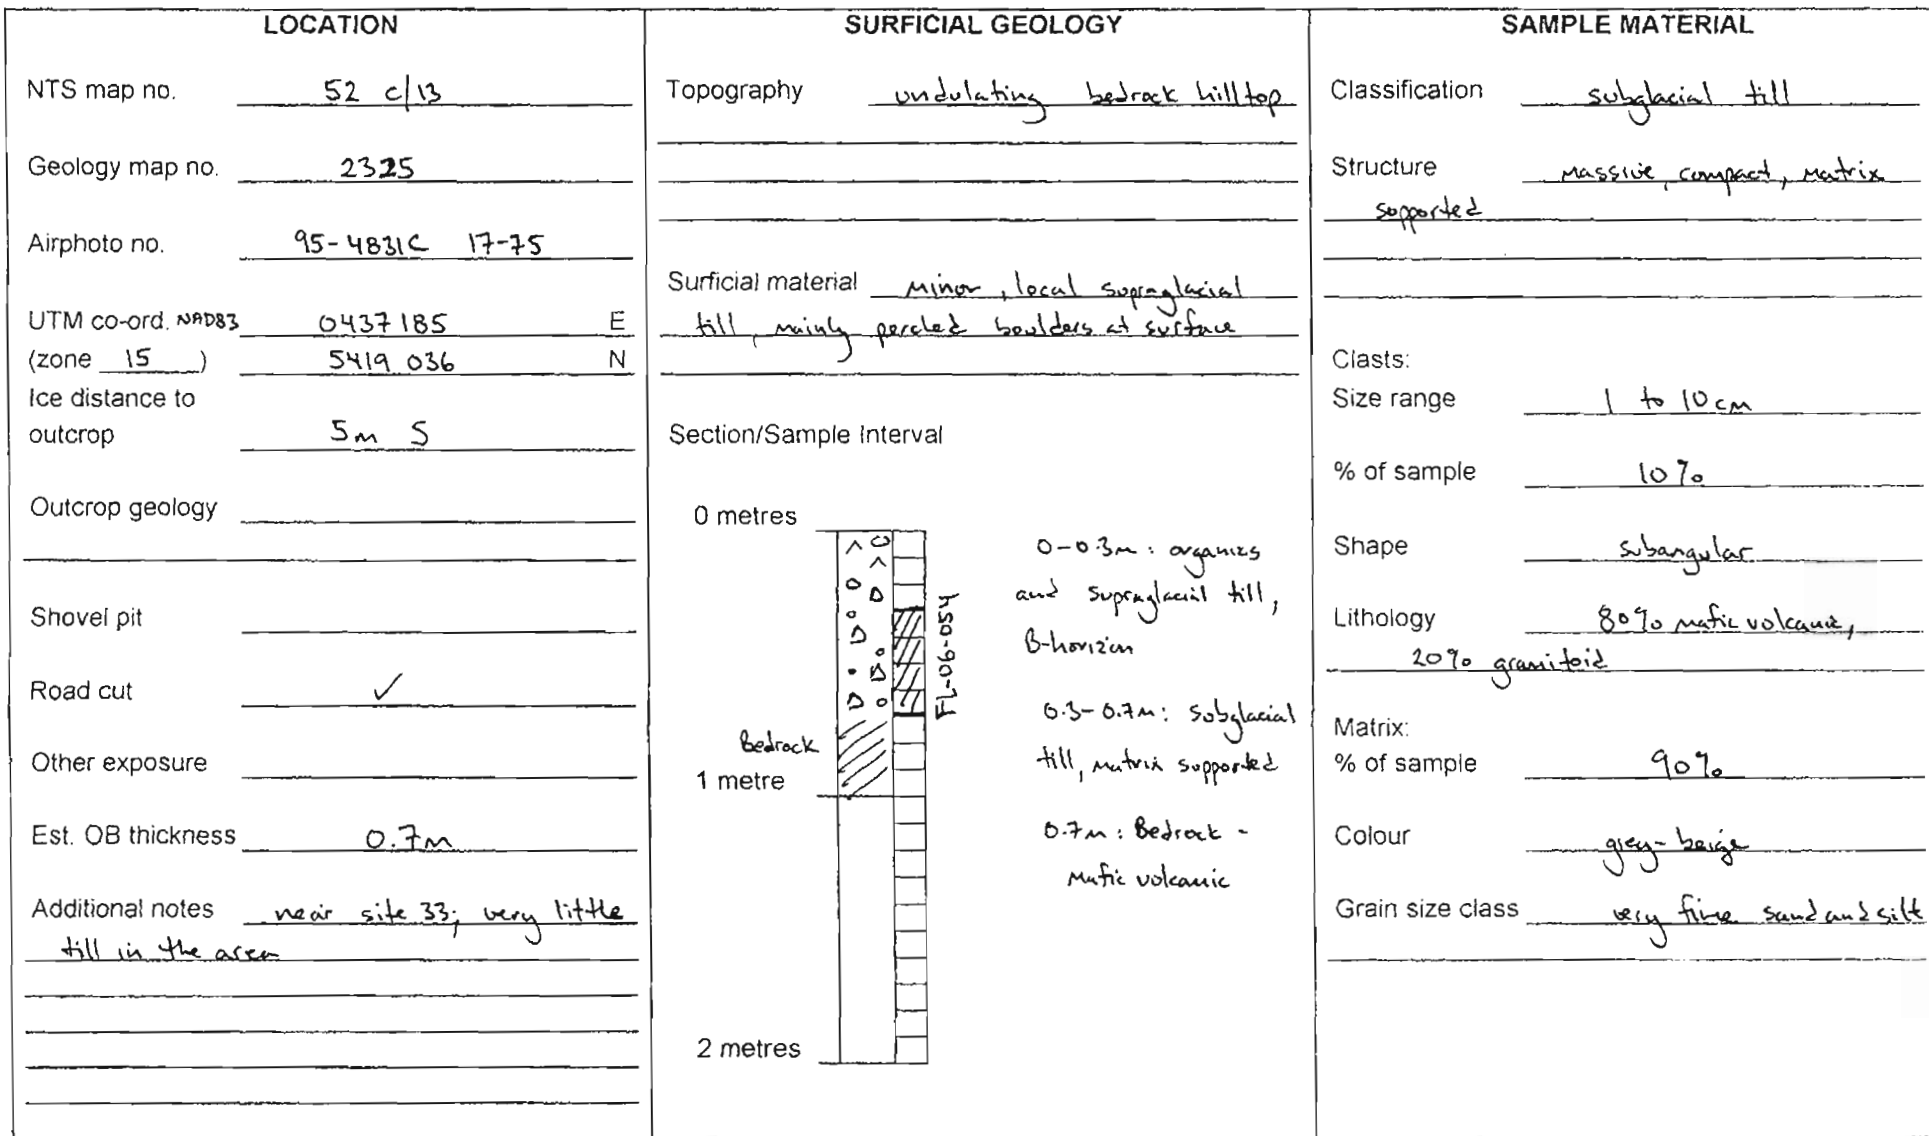 LOCATION
NTS map no. 52 c/13
Geology map no. 2325
Airphoto no. 95-4831C 17-75
UTM co-ord. NAD83 0437185 E
(zone 15) 5419 036 N
Ice distance to
outcrop 5m S
Outcrop geology
Shovel pit
Road cut ✓
Other exposure
Est. OB thickness 0.7m
Additional notes near site 33; very little
till in the area
SURFICIAL GEOLOGY
Topography undulating bedrock hilltop
Surficial material minor, local supraglacial
till, mainly perched boulders at surface
Section/Sample Interval
0 metres
Bedrock
1 metre
2 metres
FL-06-054
0-0.3m: organics
and supraglacial till,
B-horizon
0.3-0.7m: subglacial
till, matrix supported
0.7m: Bedrock -
mafic volcanic
SAMPLE MATERIAL
Classification subglacial till
Structure massive, compact, matrix
supported
Clasts:
Size range 1 to 10 cm
% of sample 10%
Shape subangular
Lithology 80% mafic volcanic,
20% granitoid
Matrix:
% of sample 90%
Colour grey-beige
Grain size class very fine sand and silt